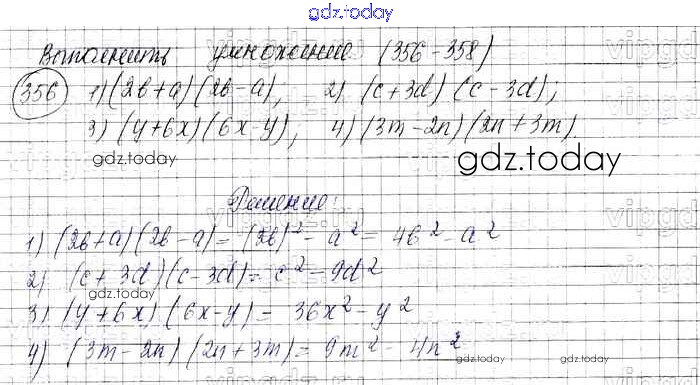 gdz.today
Выполнить умножение (356-358)
356 1) (2b+a)(2b-a), 2) (c+3d)(c-3d),
3) (y+6x)(6x-y), 4) (3m-2n)(2n+3m).
gdz.today gdz.today
Решение:
1) (2b+a)(2b-a)=(2b)²-a²=4b²-a²
2) (c+3d)(c-3d)=c²-9d²
gdz.today
3) (y+6x)(6x-y)=36x²-y²
4) (3m-2n)(2n+3m)=9m²-4n²
gdz.today gdz.today